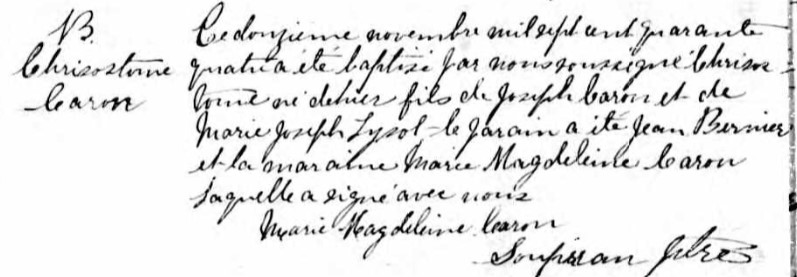 B.
Chrisostome
Caron
Ce donzieme novembre mil sept cent quarante
quatre a été baptisé par nous soussigné Chrisos-
tome né de hier fils de Joseph Caron et de
Marie Joseph Lysol - le parain a été Jean Bernier
et la maraine Marie Magdeleine Caron
laquelle a signé avec nous
Marie Magdeleine Caron
Soupiran Ptre